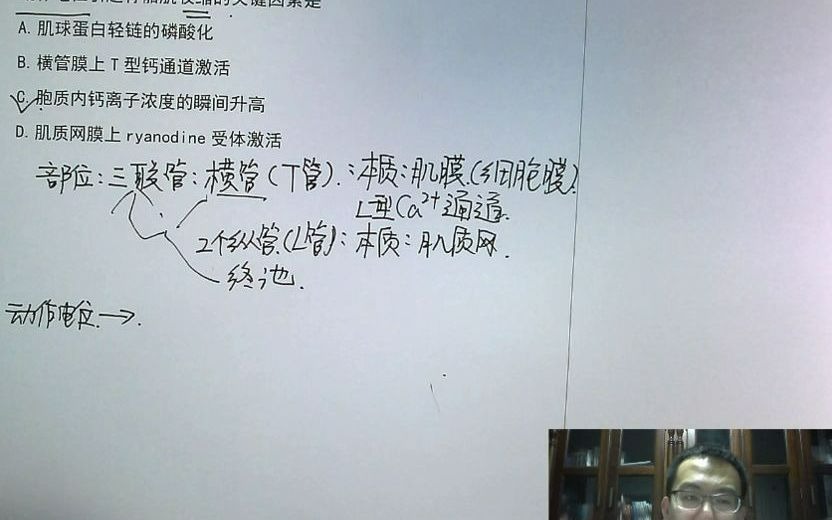 的关键因素是
A. 肌球蛋白轻链的磷酸化
B. 横管膜上 T 型钙通道激活
C. 胞质内钙离子浓度的瞬间升高
D. 肌质网膜上 ryanodine 受体激活
部位:三联管:横管(T管).:本质:肌膜.(细胞膜)
L型Ca²⁺通道.
2个纵管(L管):本质:肌质网.
终池.
动作电位→.